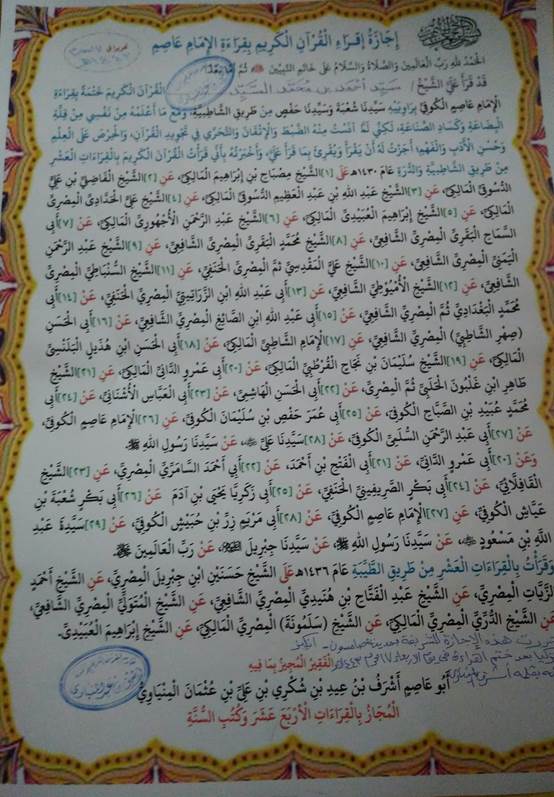 إجازةُ إقراءِ القُرآنِ الكَريمِ بقِراءةِ الإمامِ عَاصِمٍ
الحَمدُ للهِ رَبِّ العَالَمِينَ والصَّلاةُ والسَّلامُ عَلَى خَاتَمِ النَّبِيِّينَ ﷺ ثُمَّ أَمَّا بَعْدُ:
قَدْ قَرَأَ عَلَيَّ الشَّيْخُ / سيد أحمد بن محمد السيد القُرْآنَ الكَرِيمَ خَتْمَةً بِقِرَاءَةِ
الإِمَامِ عَاصِمٍ الكُوفِيِّ بِرَاوِيَيْهِ سَيِّدِنَا شُعْبَةَ وَسَيِّدِنَا حَفْصٍ مِنْ طَرِيقِ الشَّاطِبِيَّةِ، وَمَعَ مَا أَعْلَمُهُ مِنْ نَفْسِي مِنْ قِلَّةِ
البِضَاعَةِ وَكَسَادِ الصِّنَاعَةِ، لَكِنِّي لَمَّا آنَسْتُ مِنْهُ الضَّبْطَ وَالإِتْقَانَ وَالتَّحَرِّيَ فِي تَجْوِيدِ القُرْآنِ، وَالحِرْصَ عَلَى العِلْمِ
وَحُسْنَ الأَدَبِ وَالفَهْمِ، أَجَزْتُ لَهُ أَنْ يَقْرَأَ وَيُقْرِئَ بِمَا قَرَأَ عَلَيَّ، وَأَخْبَرْتُهُ بِأَنِّي قَرَأْتُ القُرْآنَ الكَرِيمَ بِالقِرَاءَاتِ العَشْرِ
مِنْ طَرِيقِ الشَّاطِبِيَّةِ وَالدُّرَّةِ عَامَ ١٤٣٠هـ عَلَى [١] الشَّيْخِ مِصْبَاحِ بْنِ إِبْرَاهِيمَ المَالِكِيِّ، عَنِ [٢] الشَّيْخِ الفَاضِلِيِّ بْنِ عَلِيٍّ
الدُّسُوقِيِّ المَالِكِيِّ، عَنِ [٣] الشَّيْخِ عَبْدِ اللهِ بْنِ عَبْدِ العَظِيمِ الدُّسُوقِيِّ المَالِكِيِّ، عَنِ [٤] الشَّيْخِ عَلِيٍّ الحَدَّادِيِّ المِصْرِيِّ
المَالِكِيِّ، عَنِ [٥] الشَّيْخِ إِبْرَاهِيمَ العُبَيْدِيِّ المَالِكِيِّ، عَنِ [٦] الشَّيْخِ عَبْدِ الرَّحْمَنِ الأُجْهُورِيِّ المَالِكِيِّ، عَنْ [٧] أَبِي
السَّمَاحِ البَقَرِيِّ المِصْرِيِّ الشَّافِعِيِّ، عَنِ [٨] الشَّيْخِ مُحَمَّدٍ البَقَرِيِّ المِصْرِيِّ الشَّافِعِيِّ، عَنِ [٩] الشَّيْخِ عَبْدِ الرَّحْمَنِ
اليَمَنِيِّ المِصْرِيِّ الشَّافِعِيِّ، عَنِ [١٠] الشَّيْخِ عَلِيٍّ المَقْدِسِيِّ ثُمَّ المِصْرِيِّ الحَنَفِيِّ، عَنِ [١١] الشَّيْخِ السُّنْبَاطِيِّ المِصْرِيِّ
الشَّافِعِيِّ، عَنِ [١٢] الشَّيْخِ الأُمْيُوطِيِّ الشَّافِعِيِّ، عَنْ [١٣] أَبِي عَبْدِ اللهِ ابْنِ الزَّرَاتِيتِيِّ المِصْرِيِّ الحَنَفِيِّ، عَنْ [١٤] أَبِي
مُحَمَّدٍ البَغْدَادِيِّ ثُمَّ المِصْرِيِّ الشَّافِعِيِّ، عَنْ [١٥] أَبِي عَبْدِ اللهِ ابْنِ الصَّائِغِ المِصْرِيِّ الشَّافِعِيِّ، عَنْ [١٦] أَبِي الحَسَنِ
(صِهْرِ الشَّاطِبِيِّ) المِصْرِيِّ الشَّافِعِيِّ، عَنِ [١٧] الإِمَامِ الشَّاطِبِيِّ المَالِكِيِّ، عَنْ [١٨] أَبِي الحَسَنِ ابْنِ هُذَيْلٍ البَلَنْسِيِّ
المَالِكِيِّ، عَنِ [١٩] الشَّيْخِ سُلَيْمَانَ بْنِ نَجَاحٍ القُرْطُبِيِّ المَالِكِيِّ، عَنْ [٢٠] أَبِي عَمْرٍو الدَّانِيِّ المَالِكِيِّ، عَنِ [٢١] الشَّيْخِ
طَاهِرِ ابْنِ غَلْبُونَ الحَلَبِيِّ ثُمَّ المِصْرِيِّ، عَنْ [٢٢] أَبِي الحَسَنِ الهَاشِمِيِّ، عَنْ [٢٣] أَبِي العَبَّاسِ الأُشْنَانِيِّ، عَنْ [٢٤] أَبِي
مُحَمَّدٍ عُبَيْدِ بْنِ الصَّبَّاحِ الكُوفِيِّ، عَنْ [٢٥] أَبِي عُمَرَ حَفْصِ بْنِ سُلَيْمَانَ الكُوفِيِّ، عَنِ [٢٦] الإِمَامِ عَاصِمٍ الكُوفِيِّ،
عَنْ [٢٧] أَبِي عَبْدِ الرَّحْمَنِ السُّلَمِيِّ الكُوفِيِّ، عَنْ [٢٨] سَيِّدِنَا عَلِيٍّ، عَنْ سَيِّدِنَا رَسُولِ اللهِ ﷺ.
وَعَنْ [٢٠] أَبِي عَمْرٍو الدَّانِيِّ، عَنْ [٢١] أَبِي الفَتْحِ بْنِ أَحْمَدَ، عَنْ [٢٢] أَبِي أَحْمَدَ السَّامَرِّيِّ المِصْرِيِّ، عَنِ [٢٣] الشَّيْخِ
القَافِلَّائِيِّ، عَنْ [٢٤] أَبِي بَكْرٍ الصَّرِيفِينِيِّ الحَنَفِيِّ، عَنْ [٢٥] أَبِي زَكَرِيَّا يَحْيَى بْنِ آدَمَ عَنْ [٢٦] أَبِي بَكْرٍ شُعْبَةَ بْنِ
عَيَّاشٍ الكُوفِيِّ، عَنِ [٢٧] الإِمَامِ عَاصِمٍ الكُوفِيِّ، عَنْ [٢٨] أَبِي مَرْيَمَ زِرِّ بْنِ حُبَيْشٍ الكُوفِيِّ، عَنْ [٢٩] سَيِّدِنَا عَبْدِ
اللهِ بْنِ مَسْعُودٍ، عَنْ سَيِّدِنَا رَسُولِ اللهِ ﷺ، عَنْ سَيِّدِنَا جِبْرِيلَ، عَنْ رَبِّ العَالَمِينَ.
وَقَرَأْتُ بِالقِرَاءَاتِ العَشْرِ مِنْ طَرِيقِ الطَّيِّبَةِ عَامَ ١٤٣٦هـ عَلَى الشَّيْخِ حَسَنَيْنِ ابْنِ جِبْرِيلَ المِصْرِيِّ، عَنِ الشَّيْخِ أَحْمَدَ
الزَّيَّاتِ المِصْرِيِّ، عَنِ الشَّيْخِ عَبْدِ الفَتَّاحِ بْنِ هُنَيْدِيٍّ المِصْرِيِّ الشَّافِعِيِّ، عَنِ الشَّيْخِ المُتَوَلِّيِّ المِصْرِيِّ الشَّافِعِيِّ،
عَنِ الشَّيْخِ الدُّرِّيِّ المِصْرِيِّ المَالِكِيِّ، عَنِ الشَّيْخِ (سَلَمُونَةَ) المِصْرِيِّ المَالِكِيِّ، عَنِ الشَّيْخِ إِبْرَاهِيمَ العُبَيْدِيِّ.
هذه الإجازة الشريفة
بعد ختم القراءة
الفَقِيرُ المُجِيزُ بِمَا فِيهِ
أَبُو عَاصِمٍ أَشْرَفُ بْنُ عِيدِ بْنِ شُكْرِي بْنِ عَلِيِّ بْنِ عُثْمَانَ المِنْيَاوِيُّ
المُجَازُ بِالقِرَاءَاتِ الأَرْبَعَ عَشَرَ وَكُتُبِ السُّنَّةِ